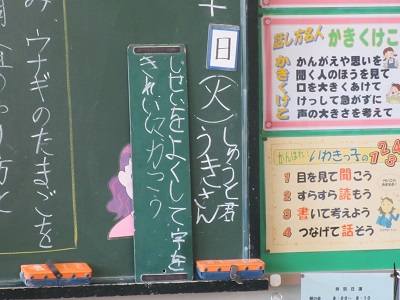 話し方名人
かきくけこ
かんがえや思いを
聞く人のほうを見て
口を大きくあけて
けっして急がずに
声の大きさを考えて
かきくけこ
がんばれ いわきっ子の1234
1 目を見て聞こう
2 すらすら読もう
3 書いて考えよう
4 つなげて話そう
日
(火)
しゅうと君
うきさん
しせいをよくして、字を
きれいにかこう
み、ウナギのたまごを